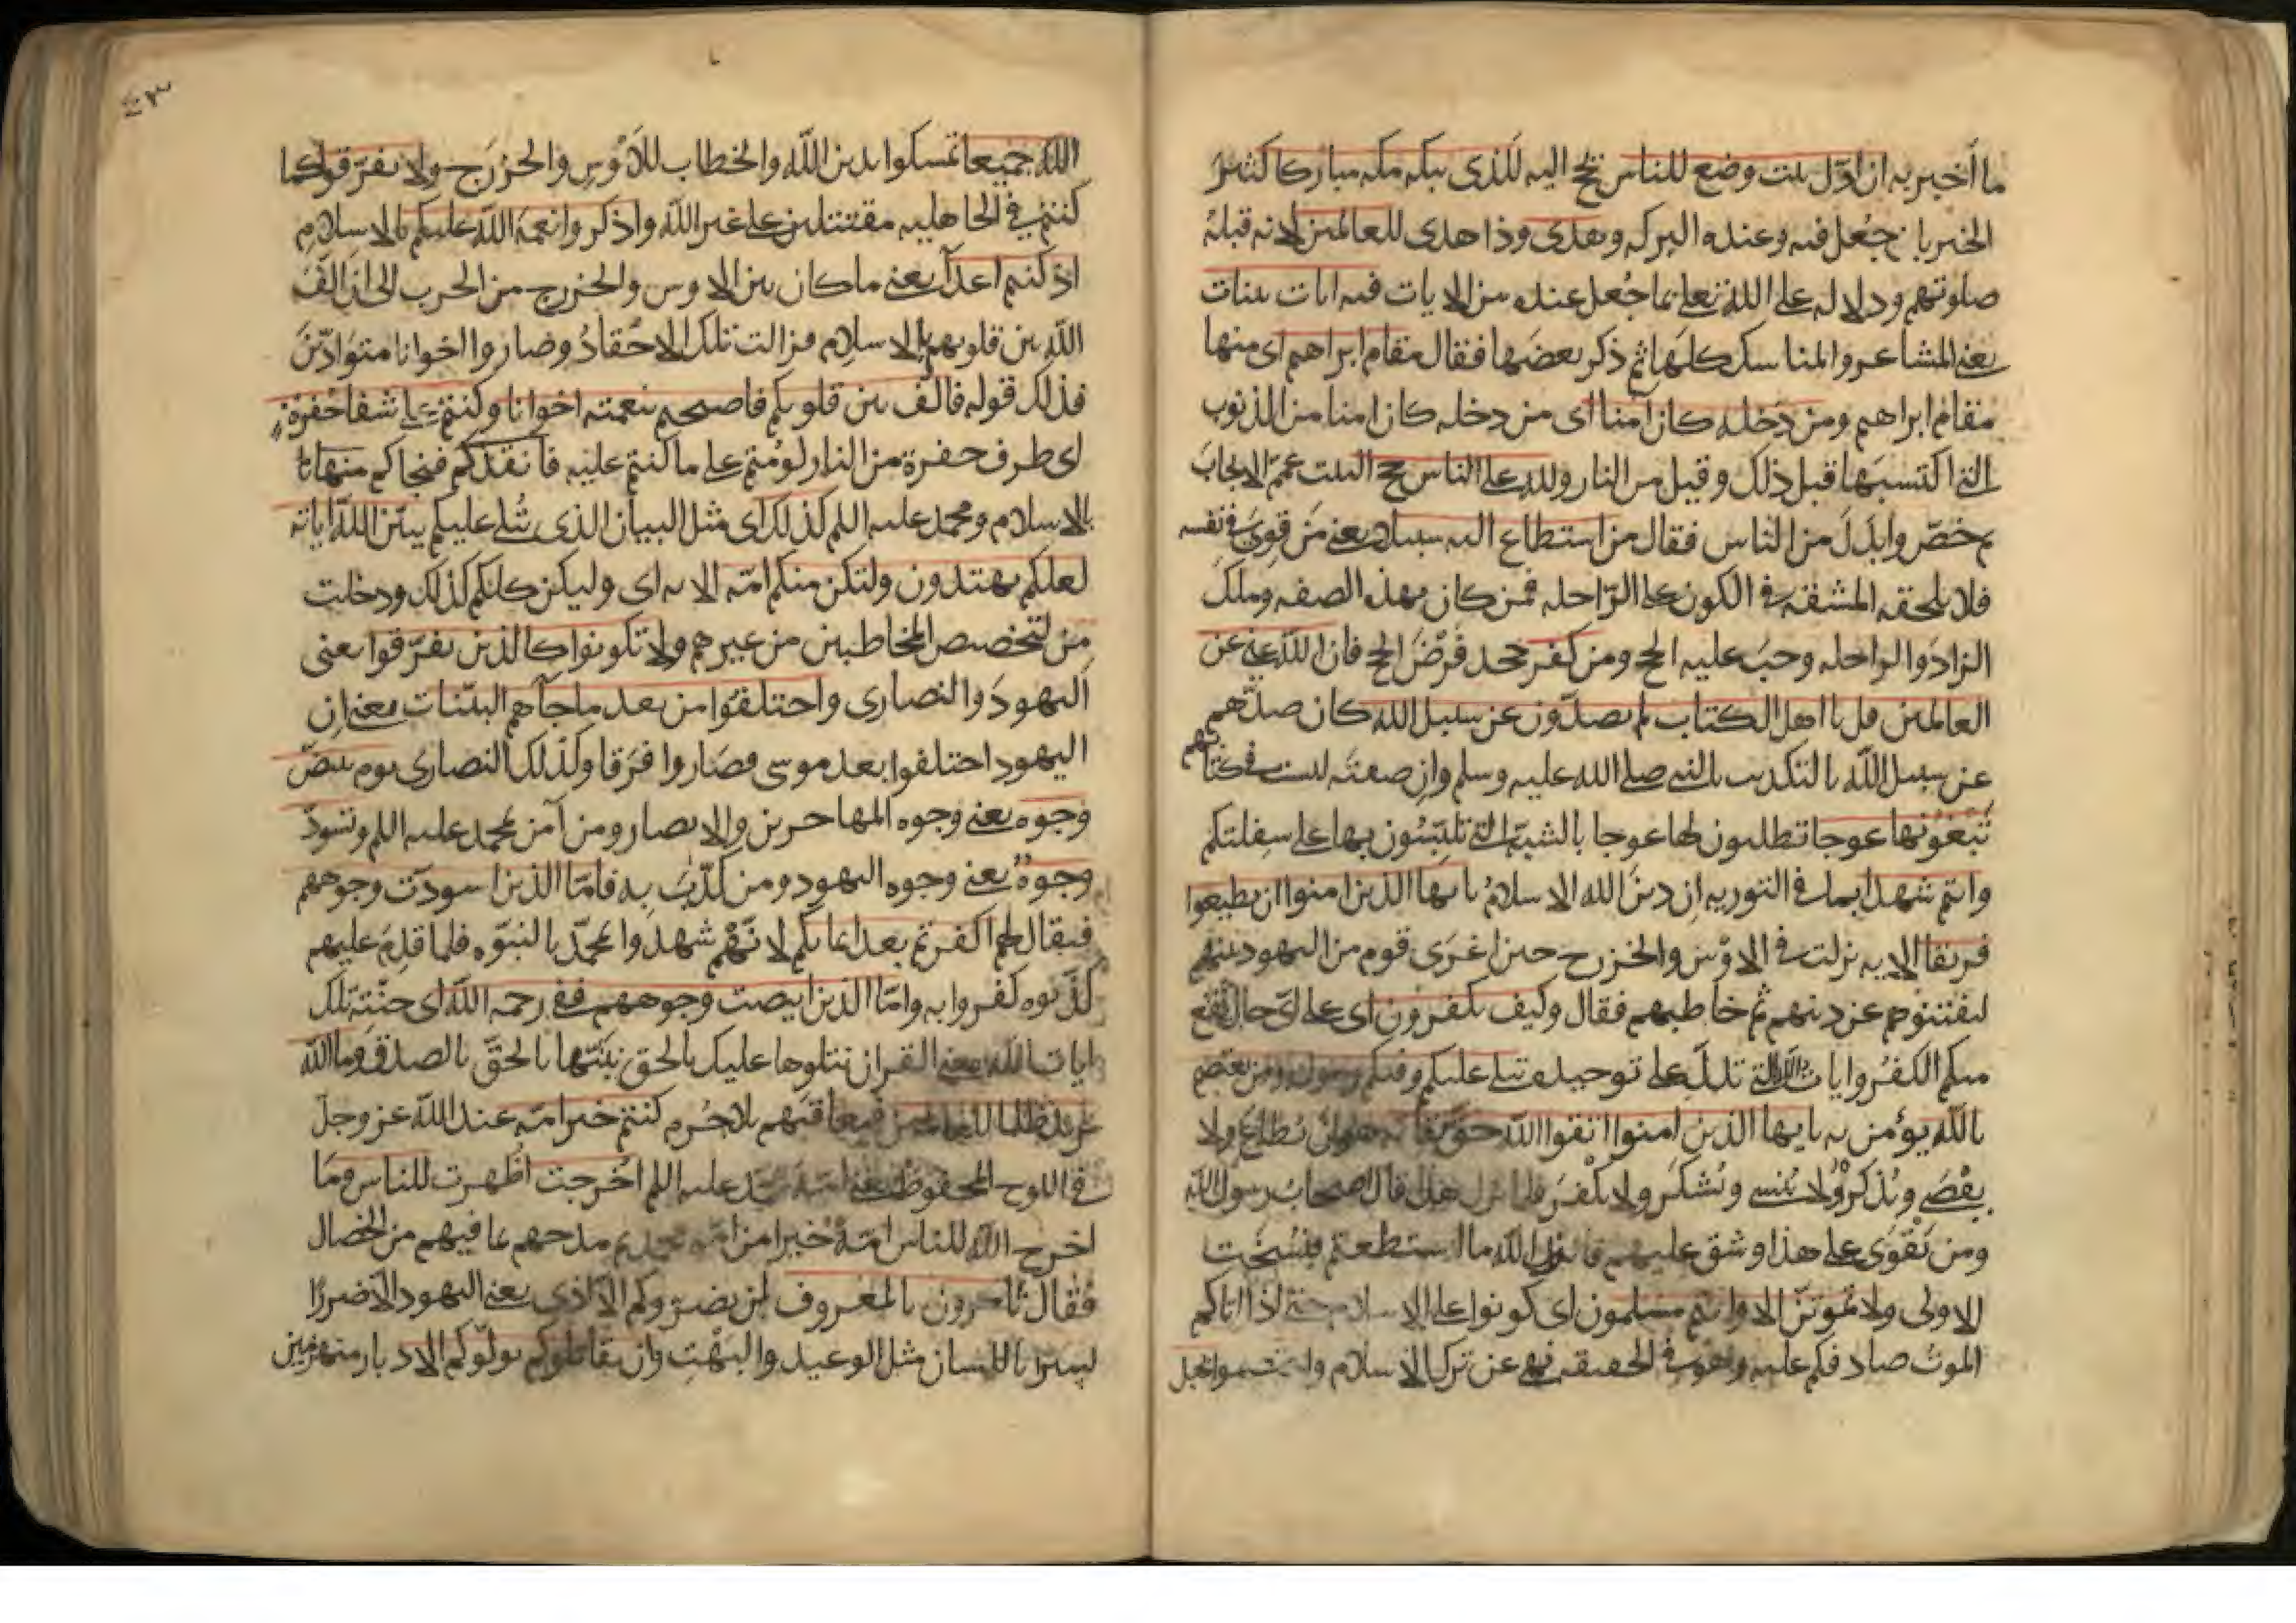 ما أخبر به ان اول بيت وضع للناس يحج اليه للذى ببكه مكه مباركا كثير
الخير بان جعل فيه وعنده البركه وهدى وذا هدى للعالمين لانه قبله
صلوتهم ودلاله على الله تعلى بما جُعل عنده من الايات فيه ايات بينات
يعنى المشاعر والمناسك كلها ثم ذكر بعضها فقال مقام ابراهيم اى منها
مقام ابراهيم ومن دخله كان آمنا اى من دخله كان امنا من الذنوب
التى اكتسبها قبل ذلك وقيل من النار ولله على الناس حج البيت عمّم الايجاب
ثم خصّ وابدَلَ من الناس فقال من استطاع اليه سبيلا يعنى مَن قوِىَ فى نفسه
فلا يلحقه المشقه فى الكون على الرّاحله فمن كان بهذه الصفه وملك
الزاد والراحله وجبَ عليه الحج ومن كفر جحد فَرْضَ الحج فان الله غنى عن
العالمين قل يا اهل الكتاب لم تصدّون عن سبيل الله كان صدّهم
عن سبيل الله بالتكذيب بالنبى صلى الله عليه وسلم وان صفته ليست فى كتابهم
تَبْغُونها عوجا تطلبون لها عوجا بالشبه التى تلبّسُون بها على سِفلتكم
وانتم شهدا بما فى التوريه ان دينَ الله الاسلامُ يا يها الذين امنوا ان تطيعوا
فريقا الايه نزلت فى الاوْس والخزرج حين اغرَى قوم من اليهود بينهم
ليفتنوهم عن دينهم ثم خاطبهم فقال وكيف تكفرون اى على اىّ حال يقع
منكم الكفرُ وايات الله التى تدلّ على توحيده تتلى عليكم وفيكم رسوله ومن يعتصم
بالله يؤمن به يا يها الذين امنوا اتقوا الله حق تقاته هو ان يُطاعَ ولا
يعْصَى ويُذكرَ ولا يُنسى ويُشكَرَ ولا يكْفرَ فلما نزل هذا قال اصحاب رسول الله
ومن يَقْوَى على هذا وشق عليهم فانزل الله ما استطعتم فنُسخَت
الاولى ولا تموتنّ الا وانتم مسلمون اى كونوا على الاسلام حتى اذا اتاكم
الموتُ صادفكم عليه وهو فى الحقيقه نهى عن ترك الاسلام واعتصموا بحبل
٤٣
الله جميعا تمسكوا بدين الله والخطاب للاَوْسِ والخزرَج ولا تفرّقوا كما
كنتم في الجاهليه مقتتلين على غير الله واذكروا نعمة الله عليكم بالاسلامِ
اذ كنتم اعدآ يعنى ما كان بين الاوس والخزرج من الحرب الى ان الّفَ
الله بين قلوبهم بالاسلام فزالت تلك الاحقادُ وصاروا اخوانا متوادّينَ
فذلك قوله فالّف بين قلوبكم فاصبحتم بنعمته اخوانا وكنتم على شفا حُفرة
اى طرف حفرة من النار لو مُتم على ما كنتم عليه فانقذكم فنجاكم منها
بالاسلام ومحمد عليه السلم كذلك اى مثل البيان الذى تُلى عليكم يبيّن الله اياته
لعلكم تهتدون ولتكن منكم امّه الايه اى وليكن كلكم كذلك ودخلت
مِن لتخصيص المخاطبين من غيرهم ولا تكونوا كالذين تفرّقوا يعنى
اليهودَ والنصارى واختلفوا من بعد ما جآهم البيّنات يعنى ان
اليهود اختلفوا بعد موسى فصَاروا فِرَقا وكذلك النصارى يوم تبيضّ
وجوه يعنى وجوه المهاجرين والانصار ومن آمن بمحمد عليه السلم وتسودّ
وجوهٌ يعنى وجوه اليهود ومن كذّبَ به فامّا الذين اسودّت وجوههم
فيقال لهم اكفرتم بعد ايمانكم لانّهُم شهدوا لمحمّد بالنبوّه فلما قدِمَ عليهم
كذّبوه كفروا به وامّا الذين ابيضت وجوههم ففى رحمه الله اى جنّتِه تلك
ايات الله يعنى القران نتلوها عليك بالحق نبيّنها بالحقّ بالصدق وما الله
يريد ظلما للعالمين فيعاقبهم بلا جُرم كنتم خير امّه عند الله عز وجل
فى اللوح المحفوظ يعنى امّة محمد عليه السلم اخرجت اظهرت للناس ومَا
اخرج الله للناس امّة خيرا من امّه محمد ثم مدحهم بما فيهم من الخصال
فقال تامرون بالمعروف لن يضرّوكم الا اذى يعنى اليهود الا ضررًا
يسيرا باللسان مثل الوعيد والبَهْتِ وان يقاتلوكم يولّوكم الادبار منهزمين